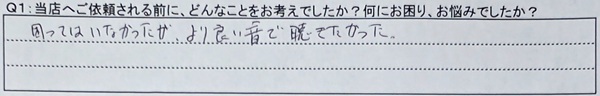 Q1:当店へご依頼される前に、どんなことをお考えでしたか?何にお困り、お悩みでしたか?
困ってはいなかったが、より良い音で聴きたかった。